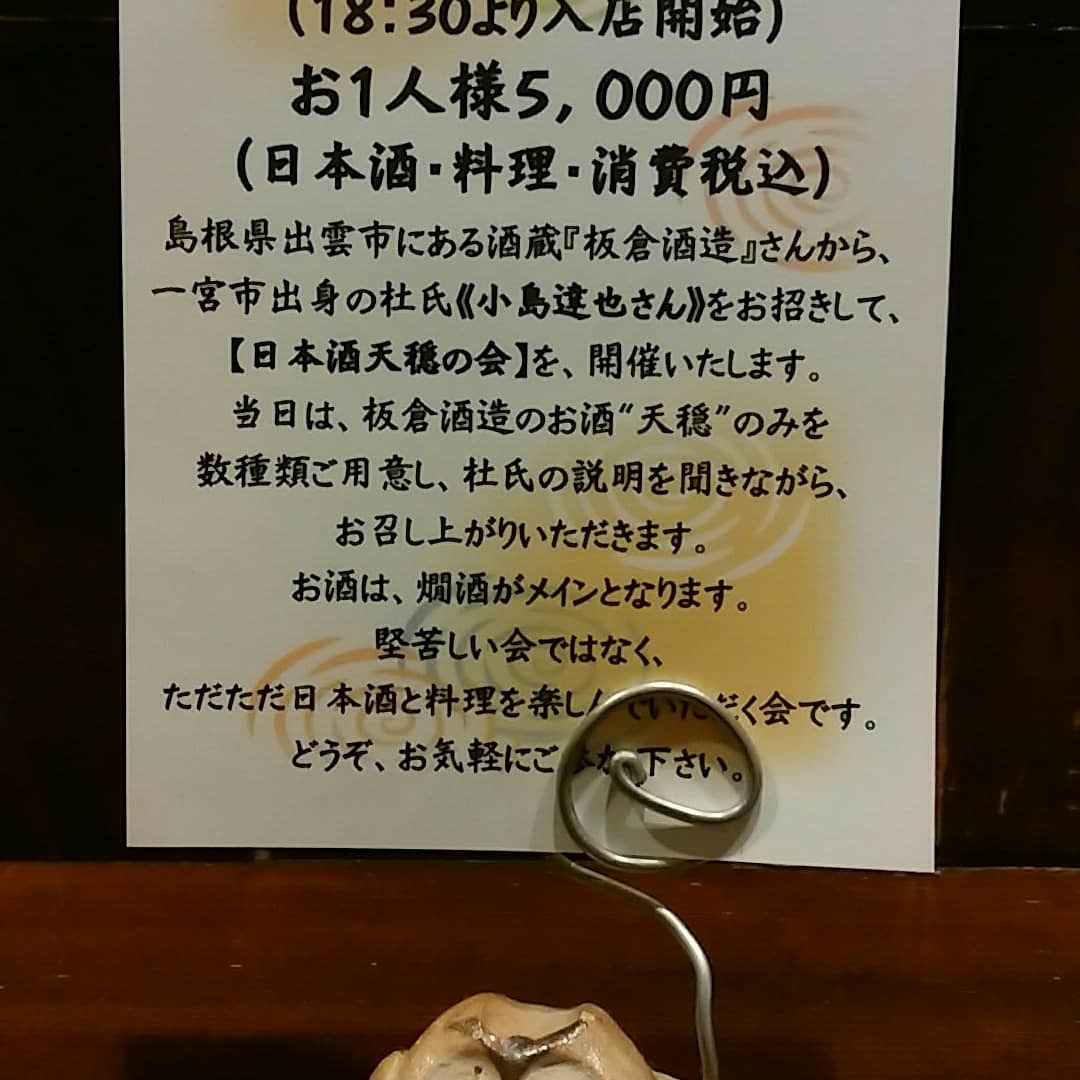 (18:30より入店開始)
お1人様5,000円
(日本酒・料理・消費税込)
島根県出雲市にある酒蔵『板倉酒造』さんから、
一宮市出身の杜氏《小島達也さん》をお招きして、
【日本酒天穏の会】を、開催いたします。
当日は、板倉酒造のお酒“天穏”のみを
数種類ご用意し、杜氏の説明を聞きながら、
お召し上がりいただきます。
お酒は、燗酒がメインとなります。
堅苦しい会ではなく、
ただただ日本酒と料理を楽しんでいただく会です。
どうぞ、お気軽にご参加下さい。